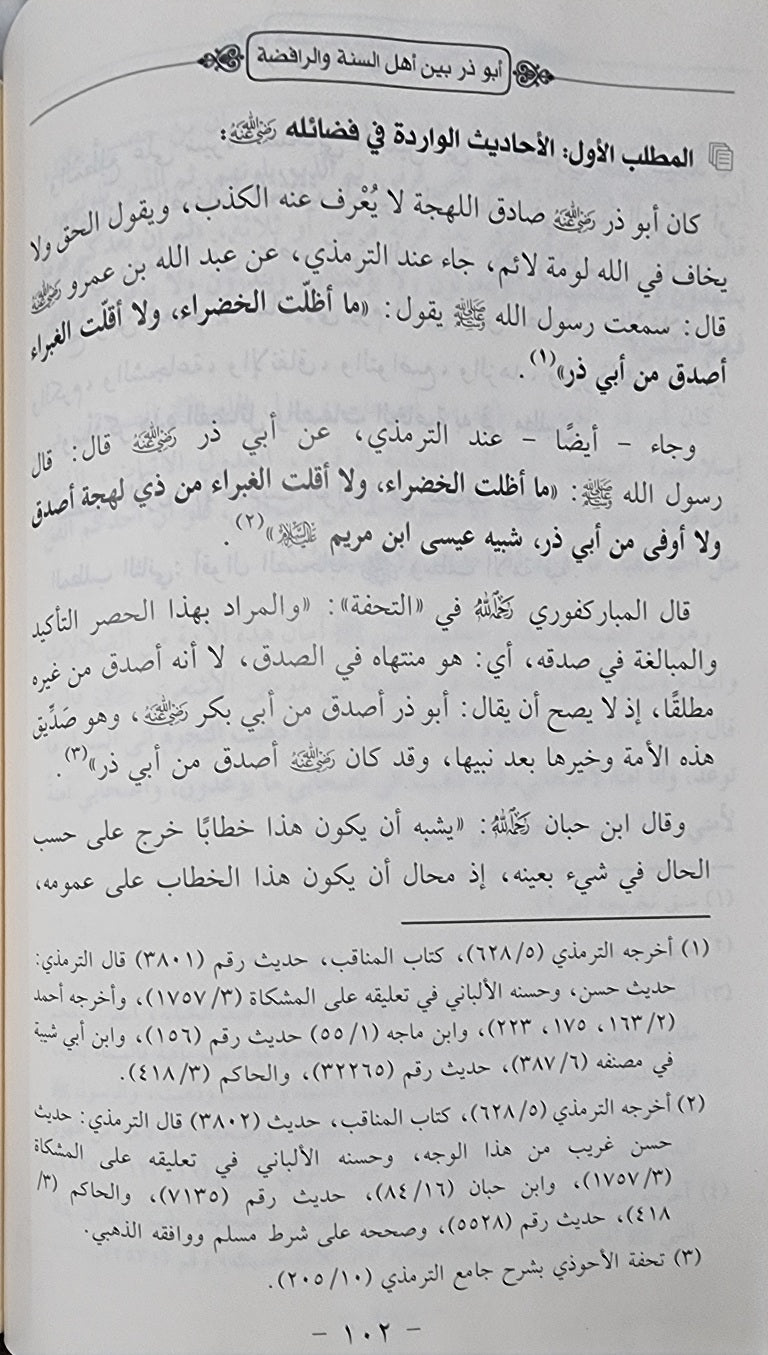 أبو ذر بين أهل السنة والرافضة
المطلب الأول: الأحاديث الواردة في فضائله رضي الله عنه:
كان أبو ذر رضي الله عنه صادق اللهجة لا يُعْرف عنه الكذب، ويقول الحق ولا
يخاف في الله لومة لائم، جاء عند الترمذي، عن عبد الله بن عمرو رضي الله عنه
قال: سمعت رسول الله ﷺ يقول: «ما أظلّت الخضراء، ولا أقلّت الغبراء
أصدق من أبي ذر»(١).
وجاء - أيضًا - عند الترمذي، عن أبي ذر رضي الله عنه قال: قال
رسول الله ﷺ: «ما أظلت الخضراء، ولا أقلت الغبراء من ذي لهجة أصدق
ولا أوفى من أبي ذر، شبيه عيسى ابن مريم عليه السلام»(٢).
قال المباركفوري رحمه الله في «التحفة»: «والمراد بهذا الحصر التأكيد
والمبالغة في صدقه، أي: هو منتهاه في الصدق، لا أنه أصدق من غيره
مطلقًا، إذ لا يصح أن يقال: أبو ذر أصدق من أبي بكر رضي الله عنه، وهو صَدِّيق
هذه الأمة وخيرها بعد نبيها، وقد كان رضي الله عنه أصدق من أبي ذر»(٣).
وقال ابن حبان رحمه الله: «يشبه أن يكون هذا خطابًا خرج على حسب
الحال في شيء بعينه، إذ محال أن يكون هذا الخطاب على عمومه،
(١) أخرجه الترمذي (٦٢٨/٥)، كتاب المناقب، حديث رقم (٣٨٠١) قال الترمذي:
حديث حسن، وحسنه الألباني في تعليقه على المشكاة (١٧٥٧/٣)، وأخرجه أحمد
(١٦٣/٢، ١٧٥، ٢٢٣)، وابن ماجه (٥٥/١) حديث رقم (١٥٦)، وابن أبي شيبة
في مصنفه (٣٨٧/٦)، حديث رقم (٣٢٢٦٥)، والحاكم (٤١٨/٣).
(٢) أخرجه الترمذي (٦٢٨/٥)، كتاب المناقب، حديث (٣٨٠٢) قال الترمذي: حديث
حسن غريب من هذا الوجه، وحسنه الألباني في تعليقه على المشكاة
(١٧٥٧/٣)، وابن حبان (٨٤/١٦)، حديث رقم (٧١٣٥)، والحاكم (٣/
٤١٨)، حديث رقم (٥٥٢٨)، وصححه على شرط مسلم ووافقه الذهبي.
(٣) تحفة الأحوذي بشرح جامع الترمذي (٢٠٥/١٠).
- ١٠٢ -